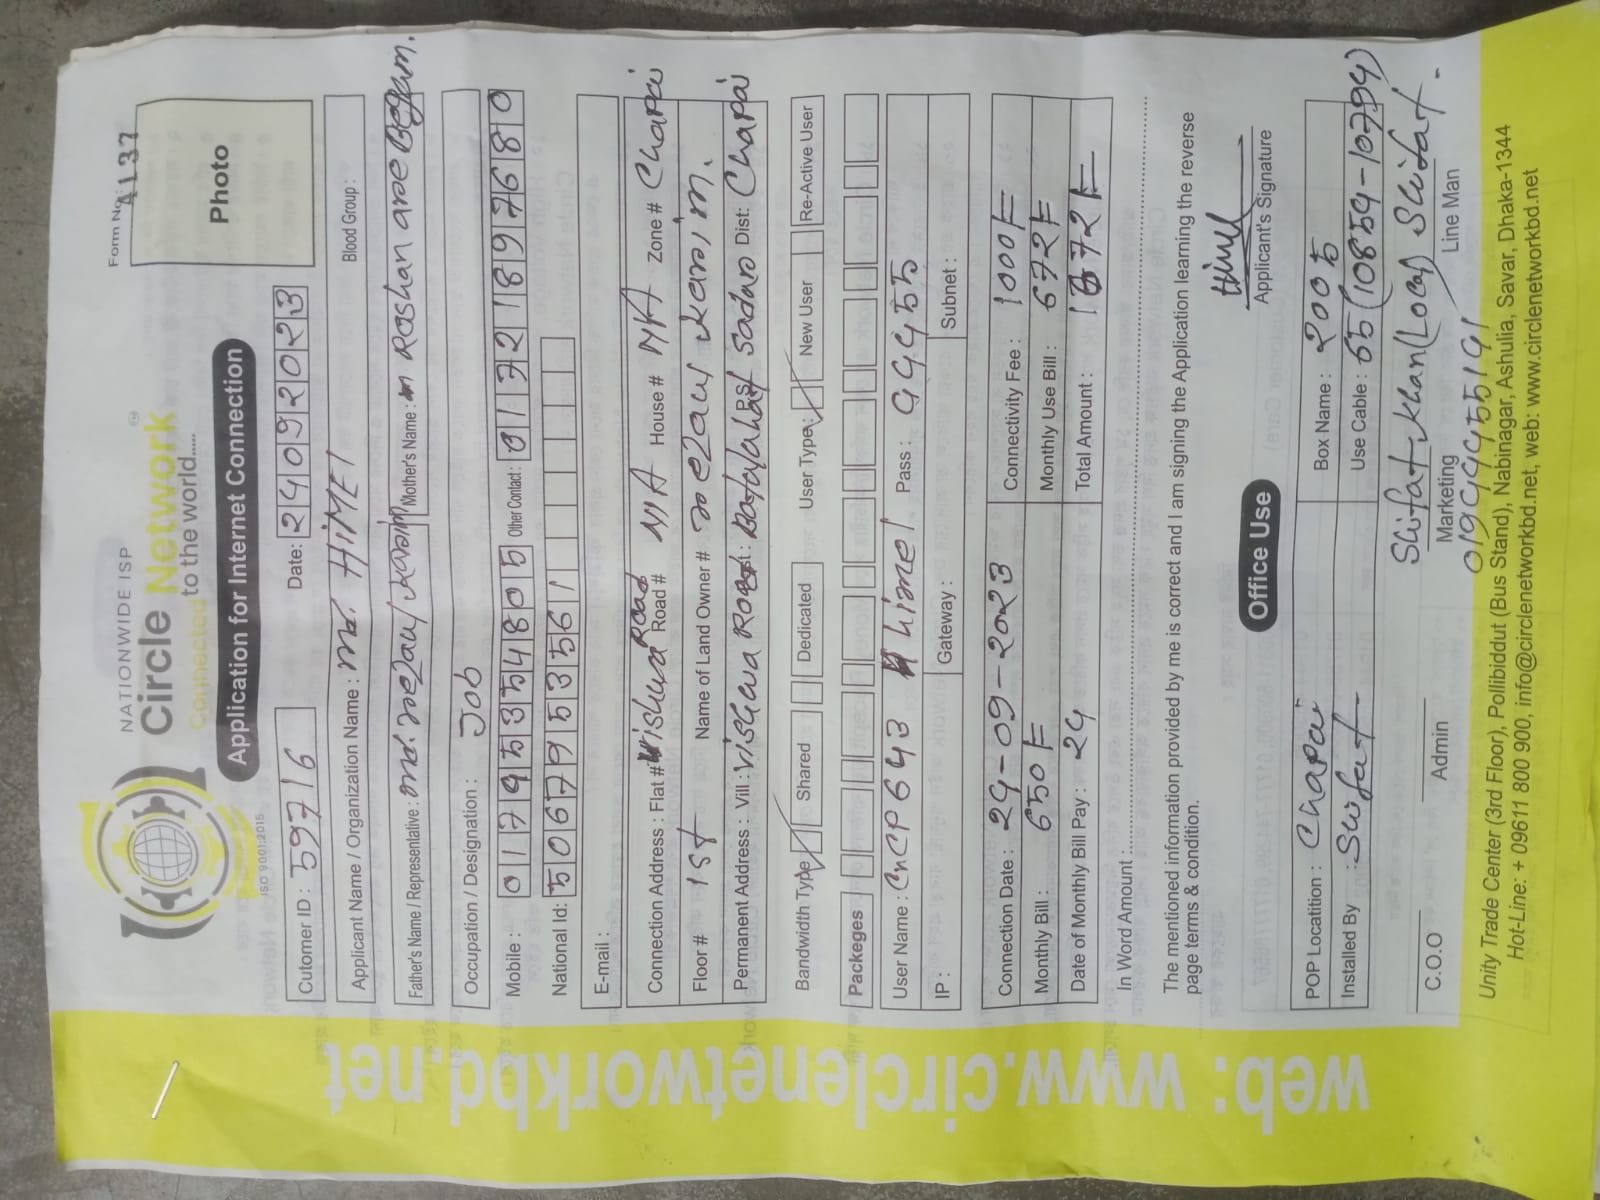 Form No.: A1137
NATIONWIDE ISP
Circle Network
Connected to the world......
ISO 9001:2015
Photo
Application for Internet Connection
Cutomer ID : 59716 Date: 24092023
Applicant Name / Organization Name : md. HiMEl Blood Group :
Father's Name / Representative : md. rezaul karim Mother's Name : Roshan are Begam.
Occupation / Designation : Job
Mobile : 01795354805 Other Contact: 01721897680
National Id: 5067953561
E-mail :
Connection Address : Flat # vishwa Road Road # N/A House # N/A Zone # Chapai
Floor # 1st Name of Land Owner # rezaul karim.
Permanent Address : Vill : vishwa Road : P.S: Sadar Dist: Chapai
Bandwidth Type Shared Dedicated User Type : New User Re-Active User
Packeges
User Name : CnCP6643 himel Pass : 664455
IP : Gateway : Subnet :
Connection Date : 24-09-2023 Connectivity Fee : 1000/=
Monthly Bill : 650/= Monthly Use Bill : 672/=
Date of Monthly Bill Pay : 24 Total Amount : 1672/=
In Word Amount :
The mentioned information provided by me is correct and I am signing the Application learning the reverse
page terms & condition.
Applicant's Signature
Office Use
POP Locatition : Chapai Box Name : 2005
Installed By : Sifat Use Cable : 65 (10859-10794)
Sifat khan (Local) Sifat.
C.O.O Admin Marketing Line Man
Unity Trade Center (3rd Floor), Pollibiddut (Bus Stand), Nabinagar, Ashulia, Savar, Dhaka-1344
Hot-Line: + 09611 800 900, info@circlenetworkbd.net, web: www.circlenetworkbd.net
web: www.circlenetworkbd.net